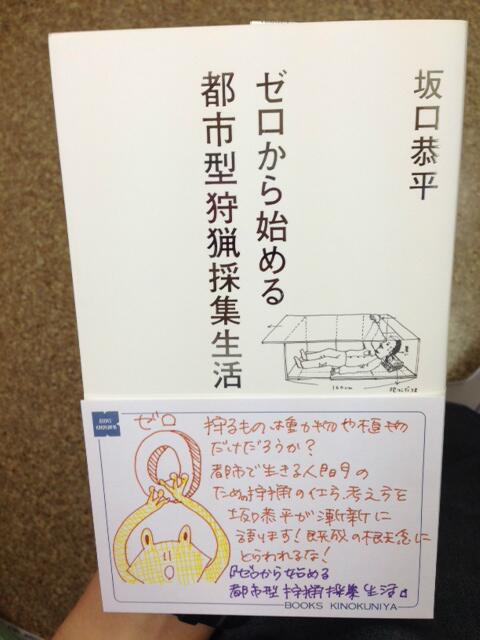 坂口恭平
ゼロから始める
都市型狩猟採集生活
BOOKS
KINOKUNIYA
ゼロ
狩るものは動物や植物
だけだろうか?
都市で生きる人間の
ため狩猟の仕方、考え方を
坂口恭平が漸新に
語ります!既成の概念に
とらわれるな!
『ゼロから始める
都市型狩猟採集生活』
BOOKS KINOKUNIYA